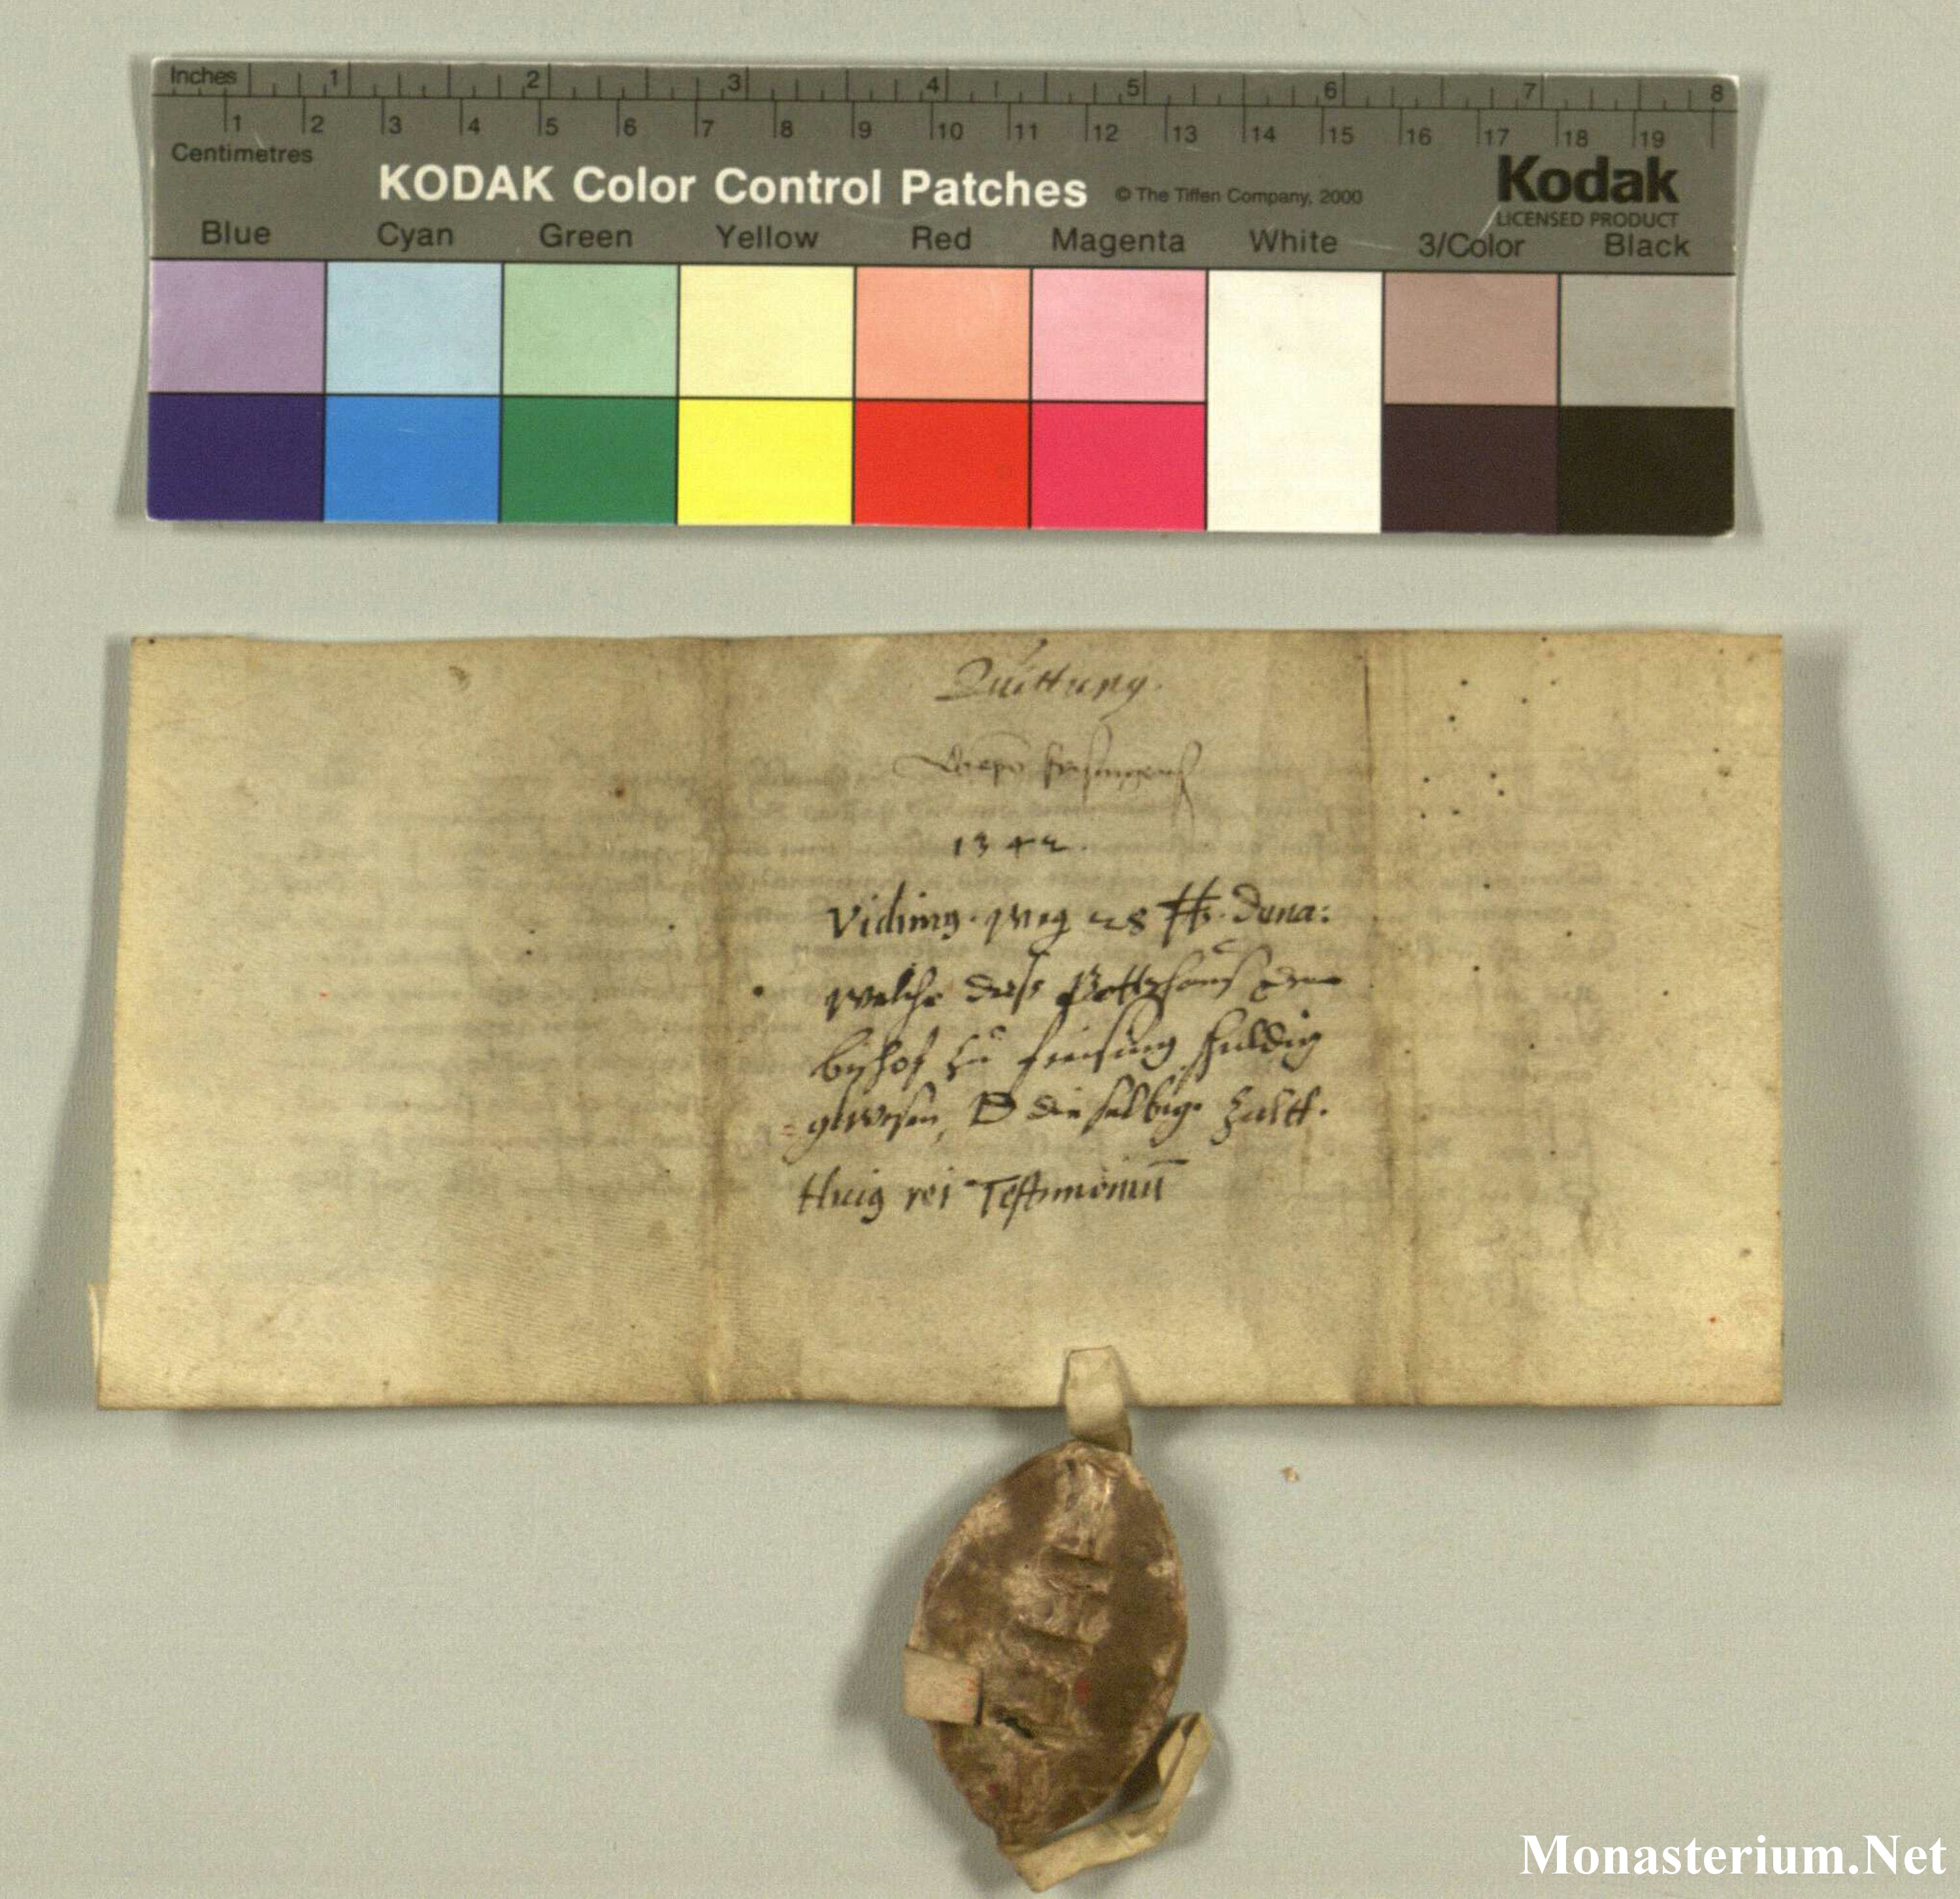 Inches 1 2 3 4 5 6 7 8
1 2 3 4 5 6 7 8 9 10 11 12 13 14 15 16 17 18 19
Centimetres
KODAK Color Control Patches © The Tiffen Company, 2000 Kodak
LICENSED PRODUCT
Blue Cyan Green Yellow Red Magenta White 3/Color Black
Quittung.
frisingens
1342.
28 dena:
welche diss Gottshauß dem
bischof zu freising schuldig
gewesen, die selbige zallt.
rei Testimoniū
Monasterium.Net